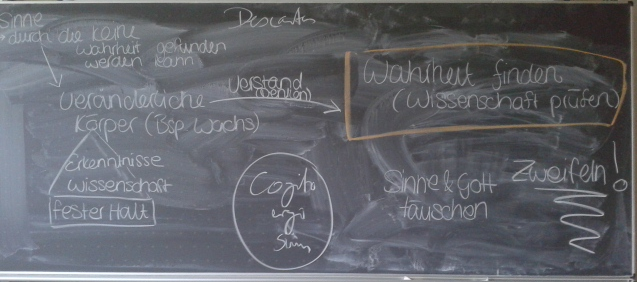 Sinne
→ durch die keine
Wahrheit gefunden
werden kann
Descartes
Veränderliche
Körper (Bsp Wachs)
Verstand
(Denken)
Wahrheit finden
(Wissenschaft prüfen)
Erkenntnisse
Wissenschaft
fester Halt
Cogito
ergo
Sum
Sinne & Gott
täuschen
Zweifeln!